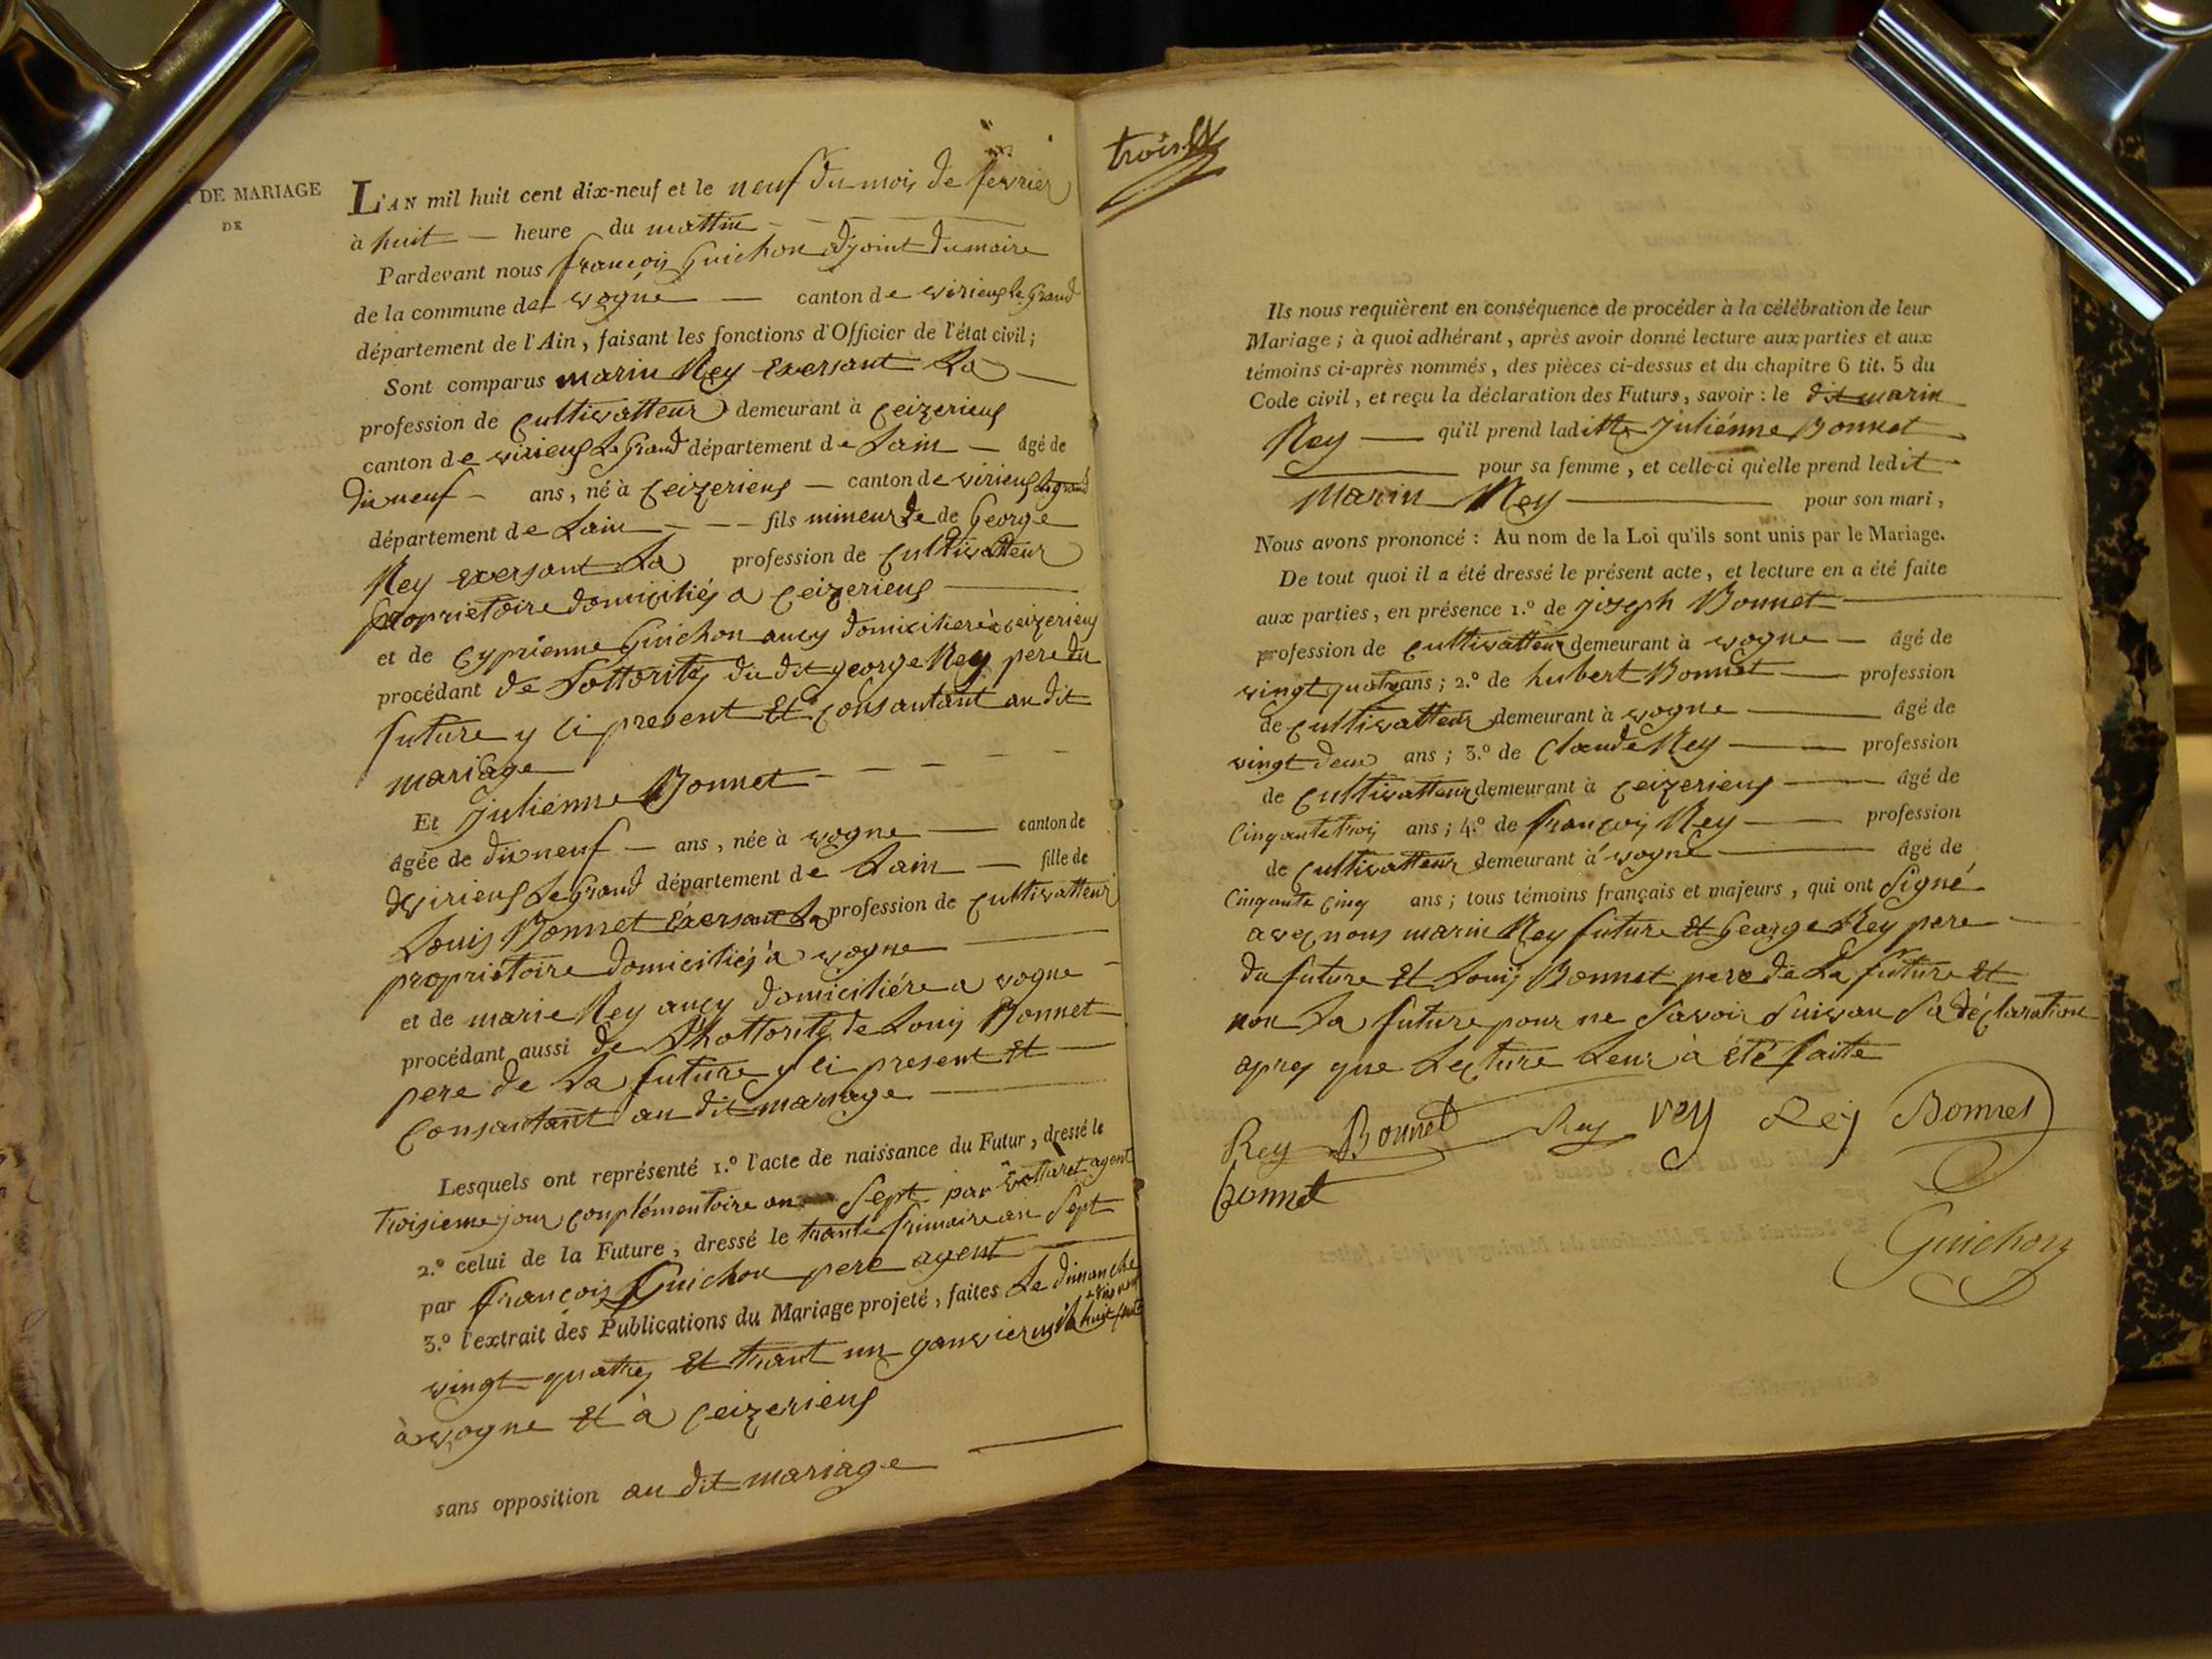 DE MARIAGE
DE
L'AN mil huit cent dix-neuf et le neuf du mois de fevrier
à huit — heure du mattin
Pardevant nous françois Guichon adjoint du maire
de la commune de vogne — canton de virieux le Grand
département de l'Ain, faisant les fonctions d'Officier de l'état civil;
Sont comparus marin Rey exersant La —
profession de cultivatteur demeurant à ceizerieux
canton de virieux Le Grand département de Lain — âgé de
dixneuf — ans, né à Ceizerieux — canton de virieux le grand
département de Lain — fils mineur de de George
Rey exersant La profession de cultivatteur
proprietoire domiciliés a ceizerieux —
et de cyprienne Guichon aucy domiciliere à ceizerieux
procédant de Lottorité du dit george Rey pere du
future y ci present Et consantant au dit
mariage
Et Juliénne Bonnet
âgée de dixneuf — ans, née à vogne — canton de
de virieux Le Grand département de Lain — fille de
Louis Bonnet éxersant La profession de cultivatteur
propriétoire domiciliés à vogne —
et de marie Rey aucy domiciliére a vogne —
procédant aussi de Lhottorité de Louis Bonnet
pere de La future y ci present Et —
consantant au dit mariage —
Lesquels ont représenté 1.º l'acte de naissance du Futur, dressé le
troisieme jour conplémentoire an Sept par agent
2.º celui de la Future, dressé le trante frimaire an Sept
par françois Guichon pere agent —
3.º l'extrait des Publications du Mariage projeté, faites Le dimanche
vingt quatre Et trant un janvier mil huit cent
à vogne Et à ceizerieux
sans opposition au dit mariage —
trois
Ils nous requièrent en conséquence de procéder à la célébration de leur
Mariage; à quoi adhérant, après avoir donné lecture aux parties et aux
témoins ci-après nommés, des pièces ci-dessus et du chapitre 6 tit. 5 du
Code civil, et reçu la déclaration des Futurs, savoir: le dit marin
Rey — qu'il prend laditte Juliénne Bonnet
— pour sa femme, et celle-ci qu'elle prend ledit
Marin Rey — pour son mari,
Nous avons prononcé: Au nom de la Loi qu'ils sont unis par le Mariage.
De tout quoi il a été dressé le présent acte, et lecture en a été faite
aux parties, en présence 1.º de joseph Bonnet —
profession de cultivatteur demeurant à vogne — âgé de
vingt quatre ans; 2.º de hubert Bonnet — profession
de cultivatteur demeurant à vogne — âgé de
vingt deux ans; 3.º de Claude Rey — profession
de cultivatteur demeurant à ceizerieux — âgé de
Cinquante trois ans; 4.º de françois Rey — profession
de cultivatteur demeurant à vogne — âgé de
Cinquante Cinq ans; tous témoins français et majeurs, qui ont Signé
avec nous marin Rey future Et George Rey pere —
du future Et Louis Bonnet pere de La future Et
non La future pour ne Savoir Suivan Sa déclaration
apres que Lecture Leur à été faite
Rey Bonnet Rey rey Rey Bonnet
bonnet
Guichon